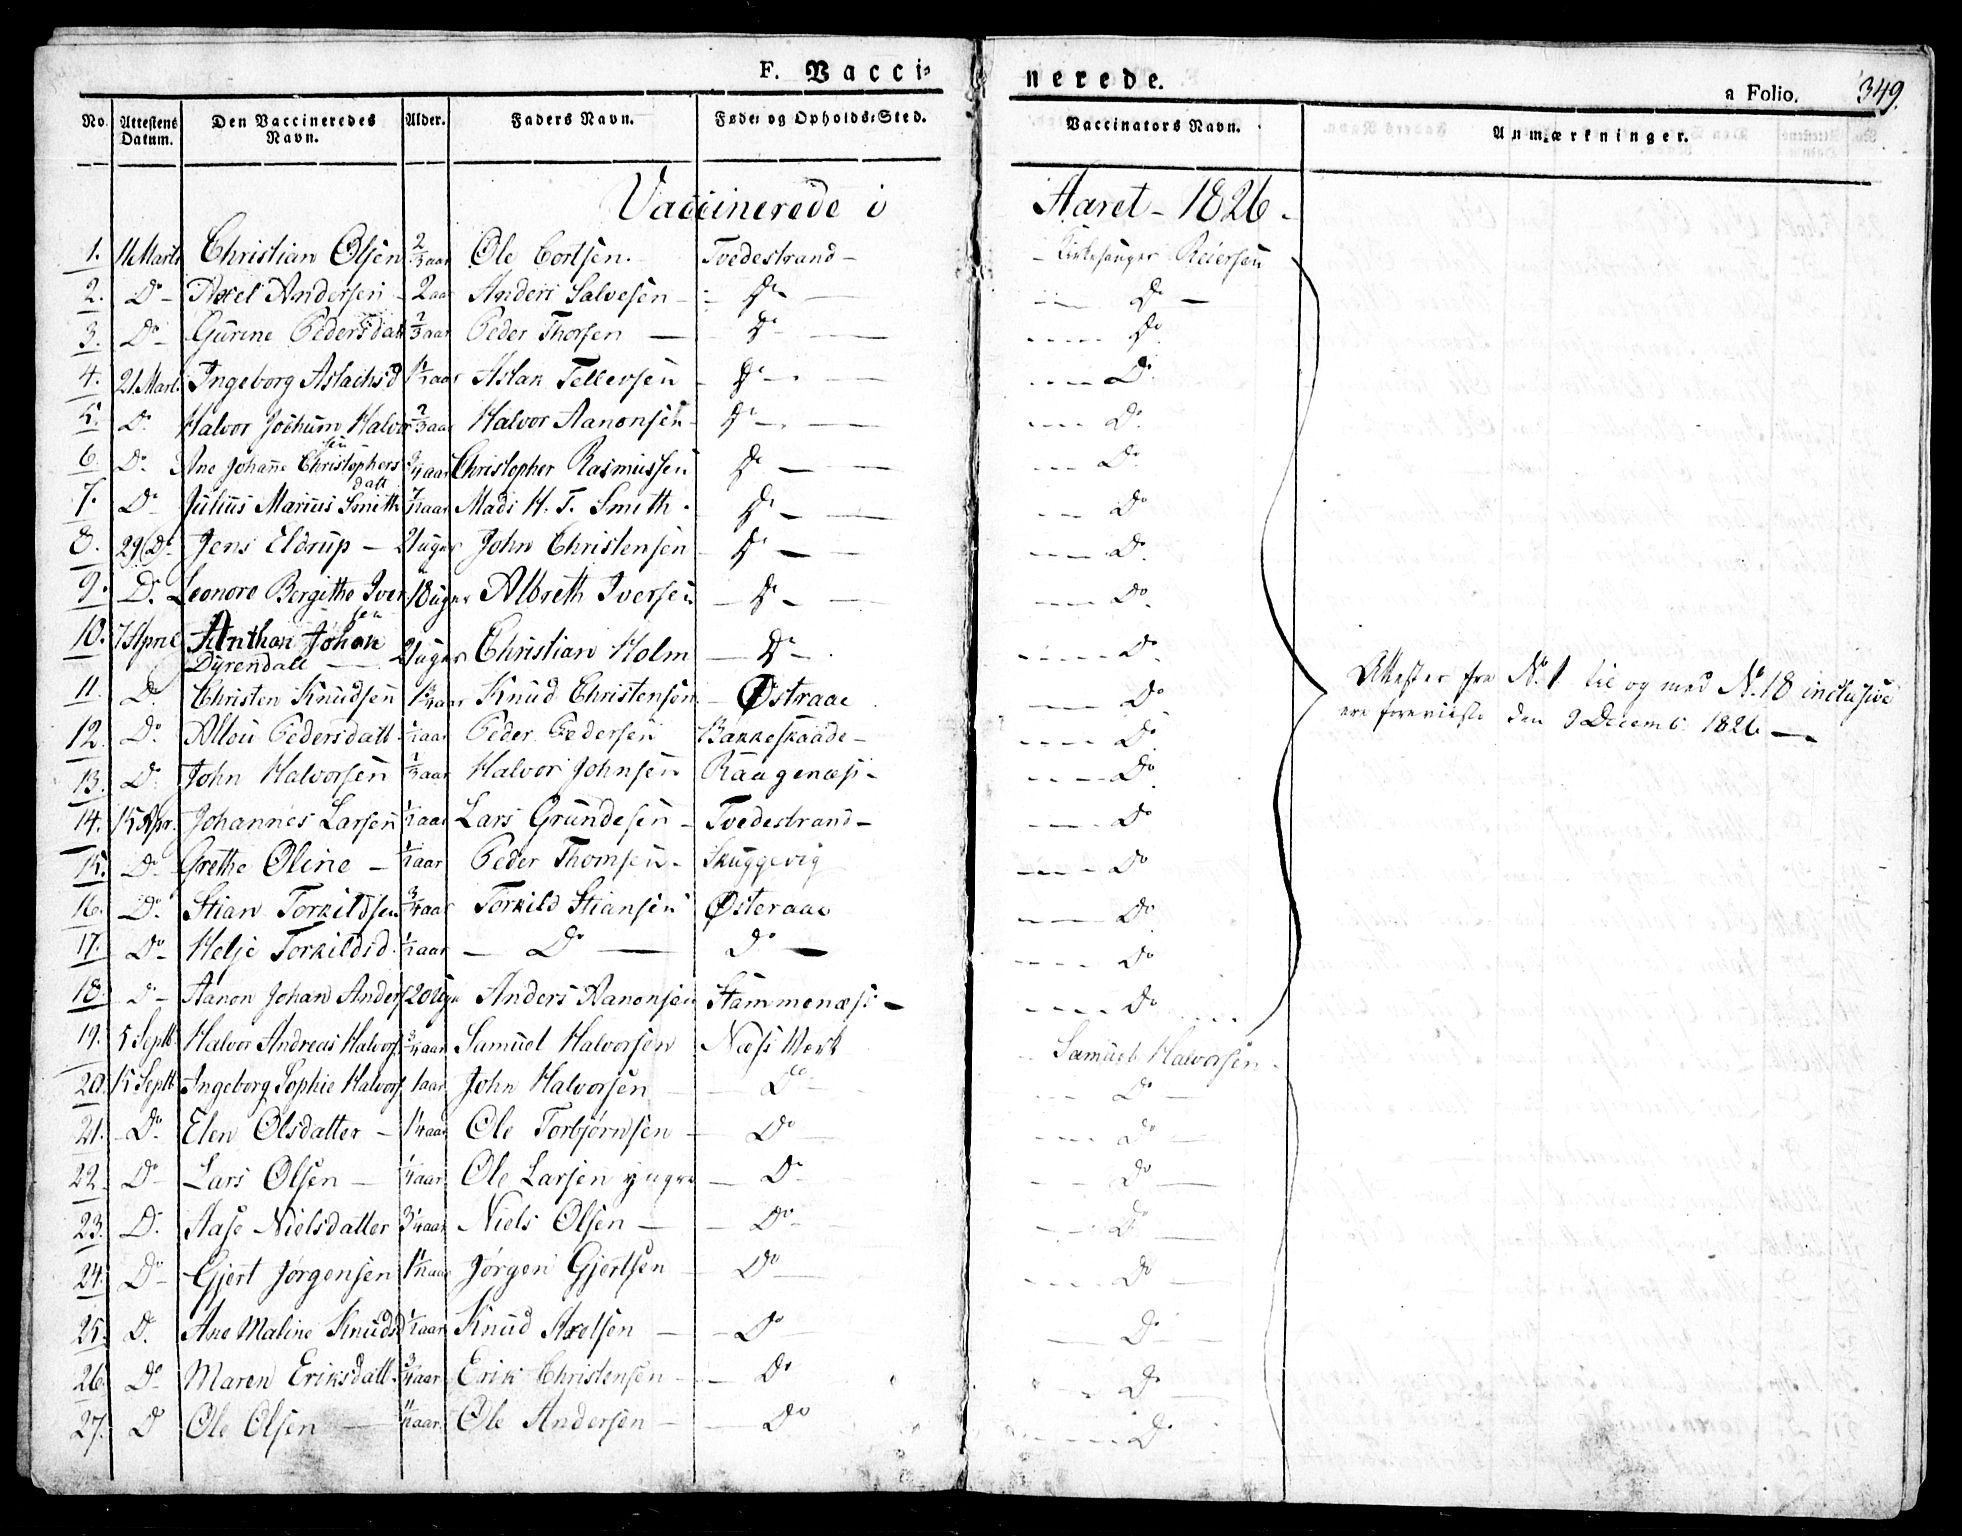 F. Vacci-
nerede.
a Folio. 349.
No. Attestens Datum. Den Vaccineredes Navn. Alder. Faders Navn. Føde- og Opholds-Sted. Vaccinators Navn. Anmærkninger.
Vaccinerede i Aaret 1826.
1. 11 Marts Christian Olsen 2/3 aar Ole Cortsen. Tvedestrand Kirkesanger Reiersen
2. Do Axel Andersen 2 aar Anders Salvesen Do Do
3. Do Gurine Pedersdatt 2/3 aar Peder Thorsen Do Do
4. 21 Marts Ingeborg Aslachsd aar Aslak Tellevsen Do Do
5. Do Halvor Jochum Halvorsen 2/3 aar Halvor Aanonsen Do Do
6. Do Ane Johanne Christophersdatt 3/4 aar Christopher Rasmussen Do Do
7. Do Julius Marius Smith aar Mads H. T. Smith Do Do
8. 29 Do Jens Eldrup 21 uger John Christensen Do Do
9. Do Leonore Bergithe Iversen 18 uger Albreth Iversen Do Do
10. 7 April Anthon Johan Dyrendall 21 uger Christian Holm Do Do
11. Do Christen Knudsen aar Knud Christensen Østraae Do
12. Do Pedersdatt 1/2 aar Peder Pedersen Bakkeskaade Do
13. Do John Halvorsen 1/3 aar Halvor Johnsen Raagenæs Do
14. 15 Apr. Johannes Larsen 1/2 aar Lars Grundesen Tvedestrand Do
15. Do Grethe Oline 1/2 aar Peder Thomsen Skuggevig Do
16. Do Stian Torkildsen 3/4 aar Torkild Stiansen Østeraae Do
17. Do Helje Torkildsd. 1/2 aar Do Do Do
18. Do Aanon Johan Anders 20 Uger Anders Aanonsen Stammenæs Do
Attester fra No. 1 til og med No. 18 inclusive
ere foreviste den 9 Decemb. 1826
19. 5 Septb Halvor Andreas Halvors 3/4 aar Samuel Halvorsen Næss Verk Samuel Halvorsen
20. 15 Septb Ingeborg Sophie Halvors 1 aar John Halvorsen Do Do
21. Do Elen Olsdatter 1 1/4 aar Ole Torbjørnsen Do Do
22. Do Lars Olsen 1/4 aar Ole Larsen yngre Do Do
23. Do Aase Nielsdatter 3 1/4 aar Niels Olsen Do Do
24. Do Gjert Jørgensen aar Jørgen Gjertsen Do Do
25. Do Ane Maline Knudsd 1/2 aar Knud Axelsen Do Do
26. Do Maren Eriksdatt. 3/4 aar Erik Christensen Do Do
27. Do Ole Olsen aar Ole Andersen Do Do